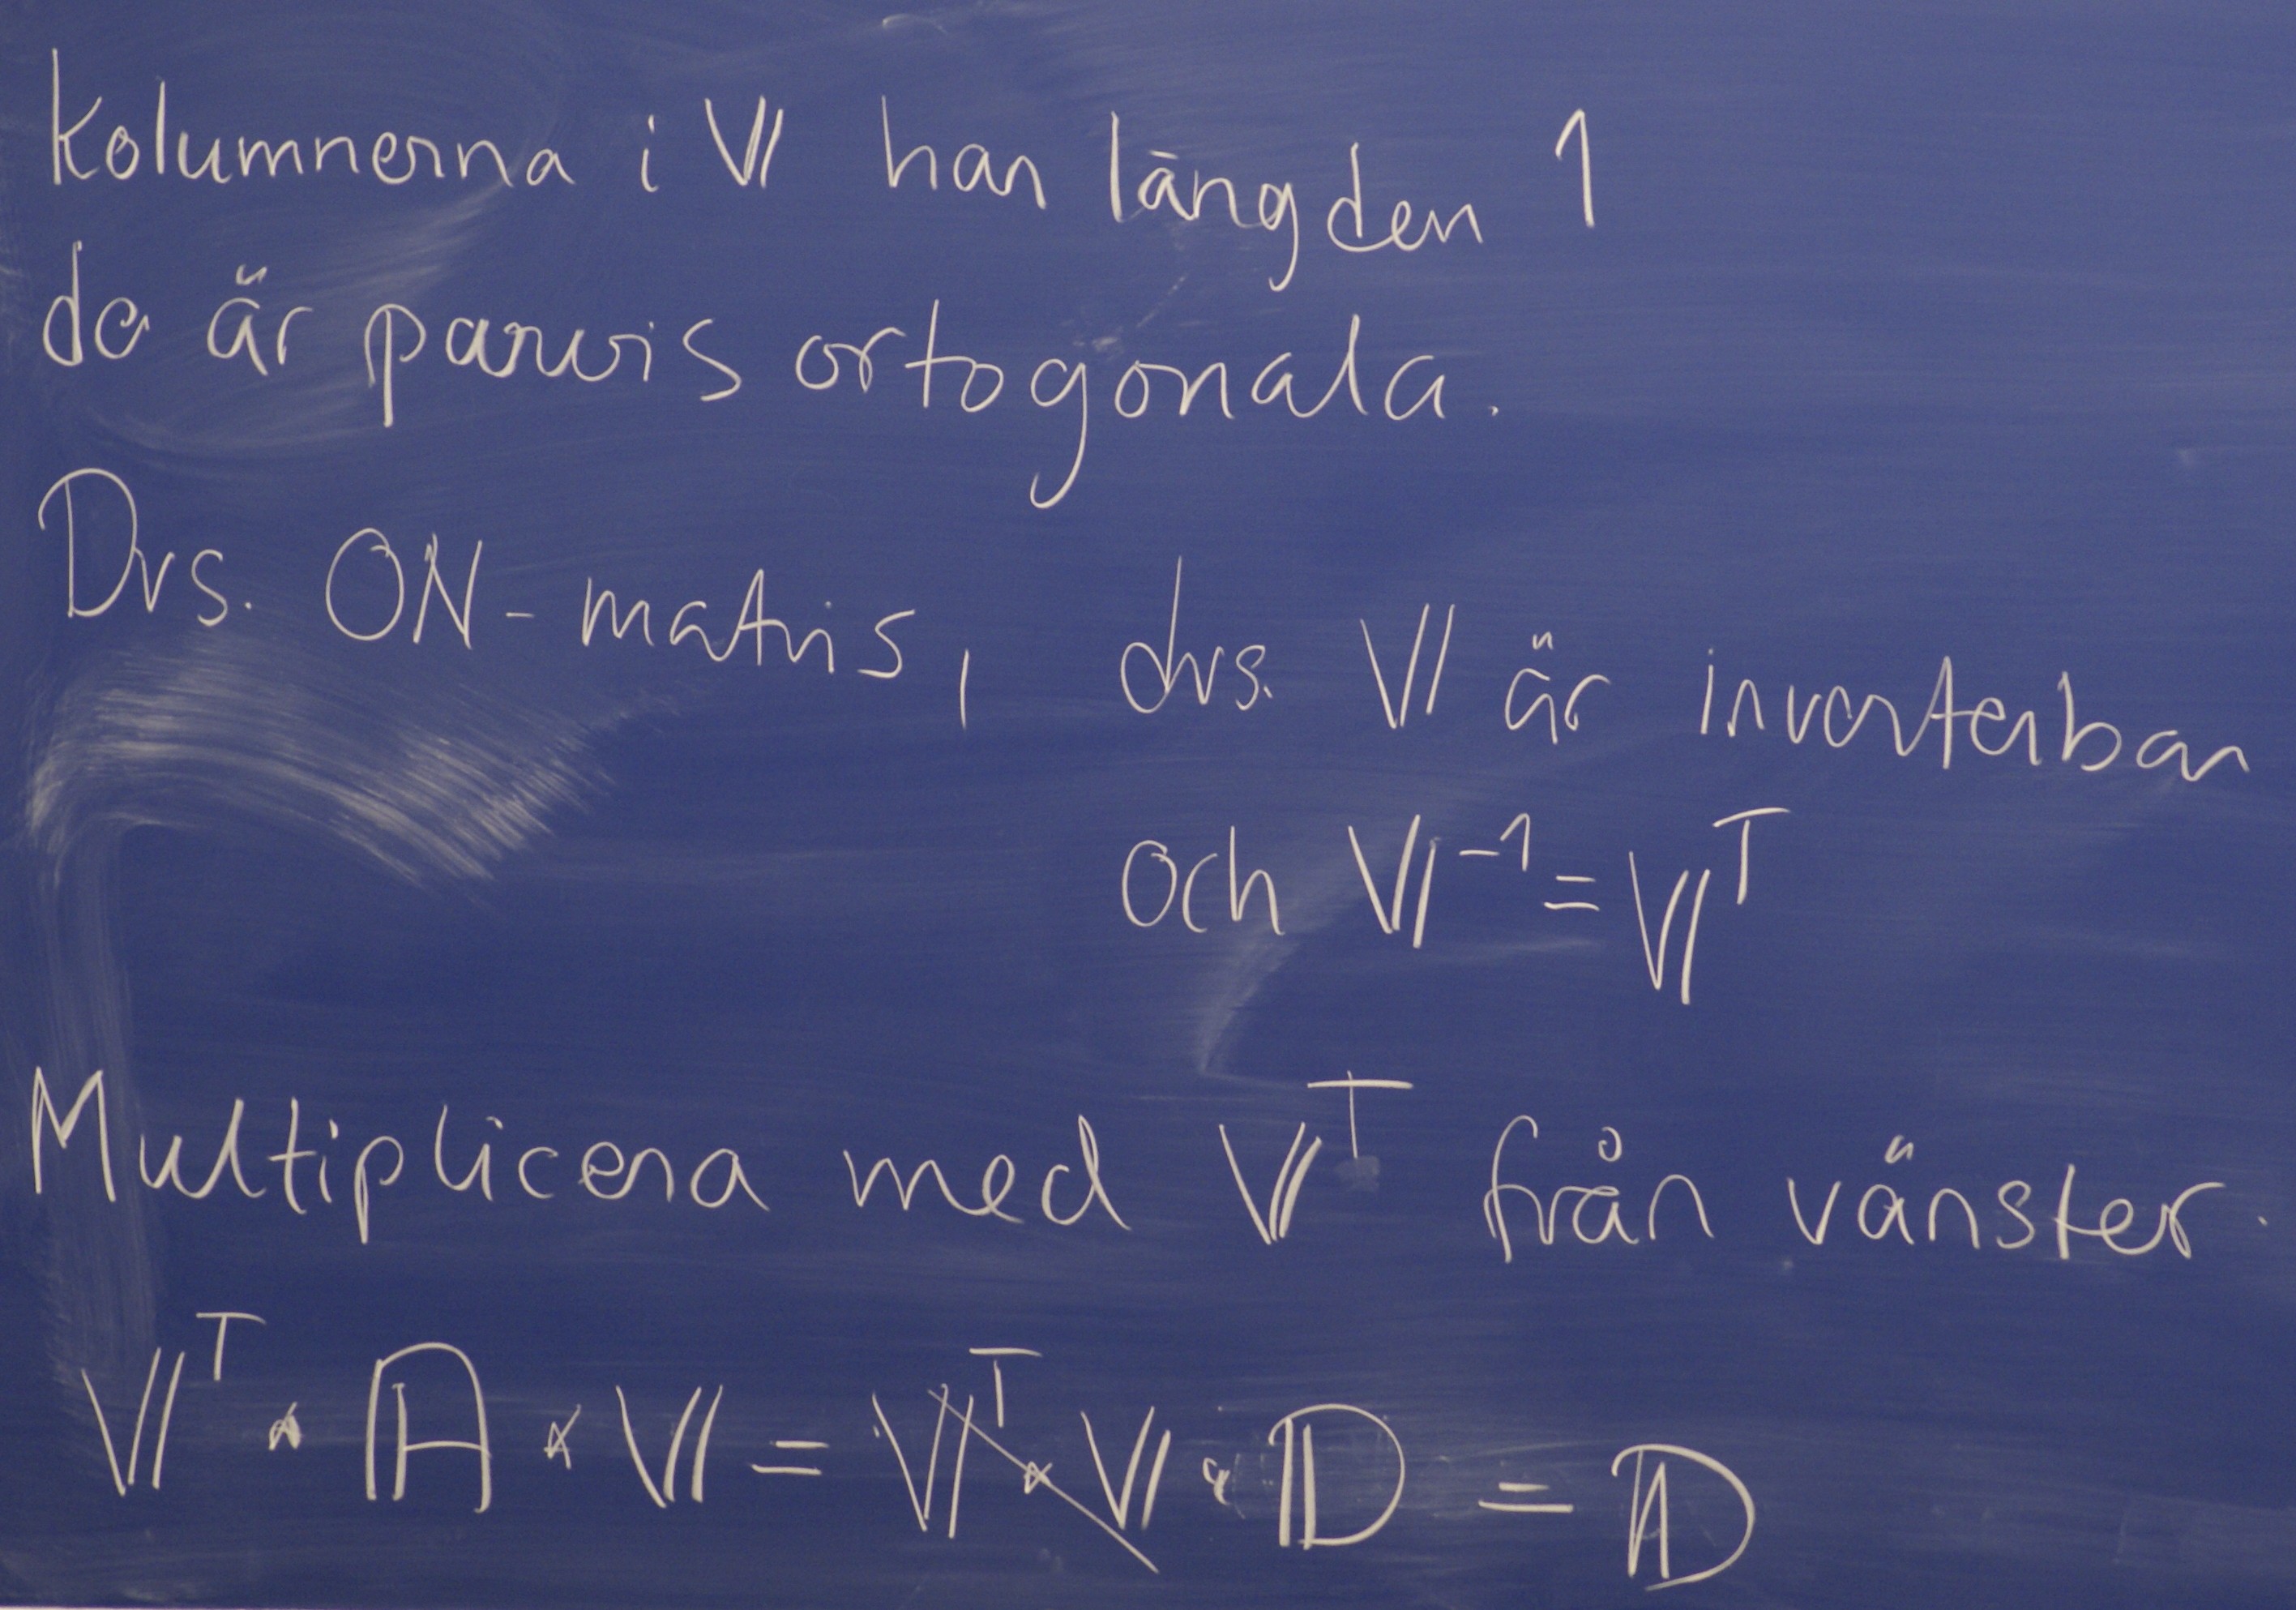 Kolumnerna i 𝕍 har längden 1
de är parvis ortogonala.
Dvs. ON-matris, dvs. 𝕍 är inverterbar
och 𝕍⁻¹ = 𝕍ᵀ
Multiplicera med 𝕍ᵀ från vänster.
𝕍ᵀ · 𝔸 · 𝕍 = 𝕍ᵀ · 𝕍 · 𝔻 = 𝔻